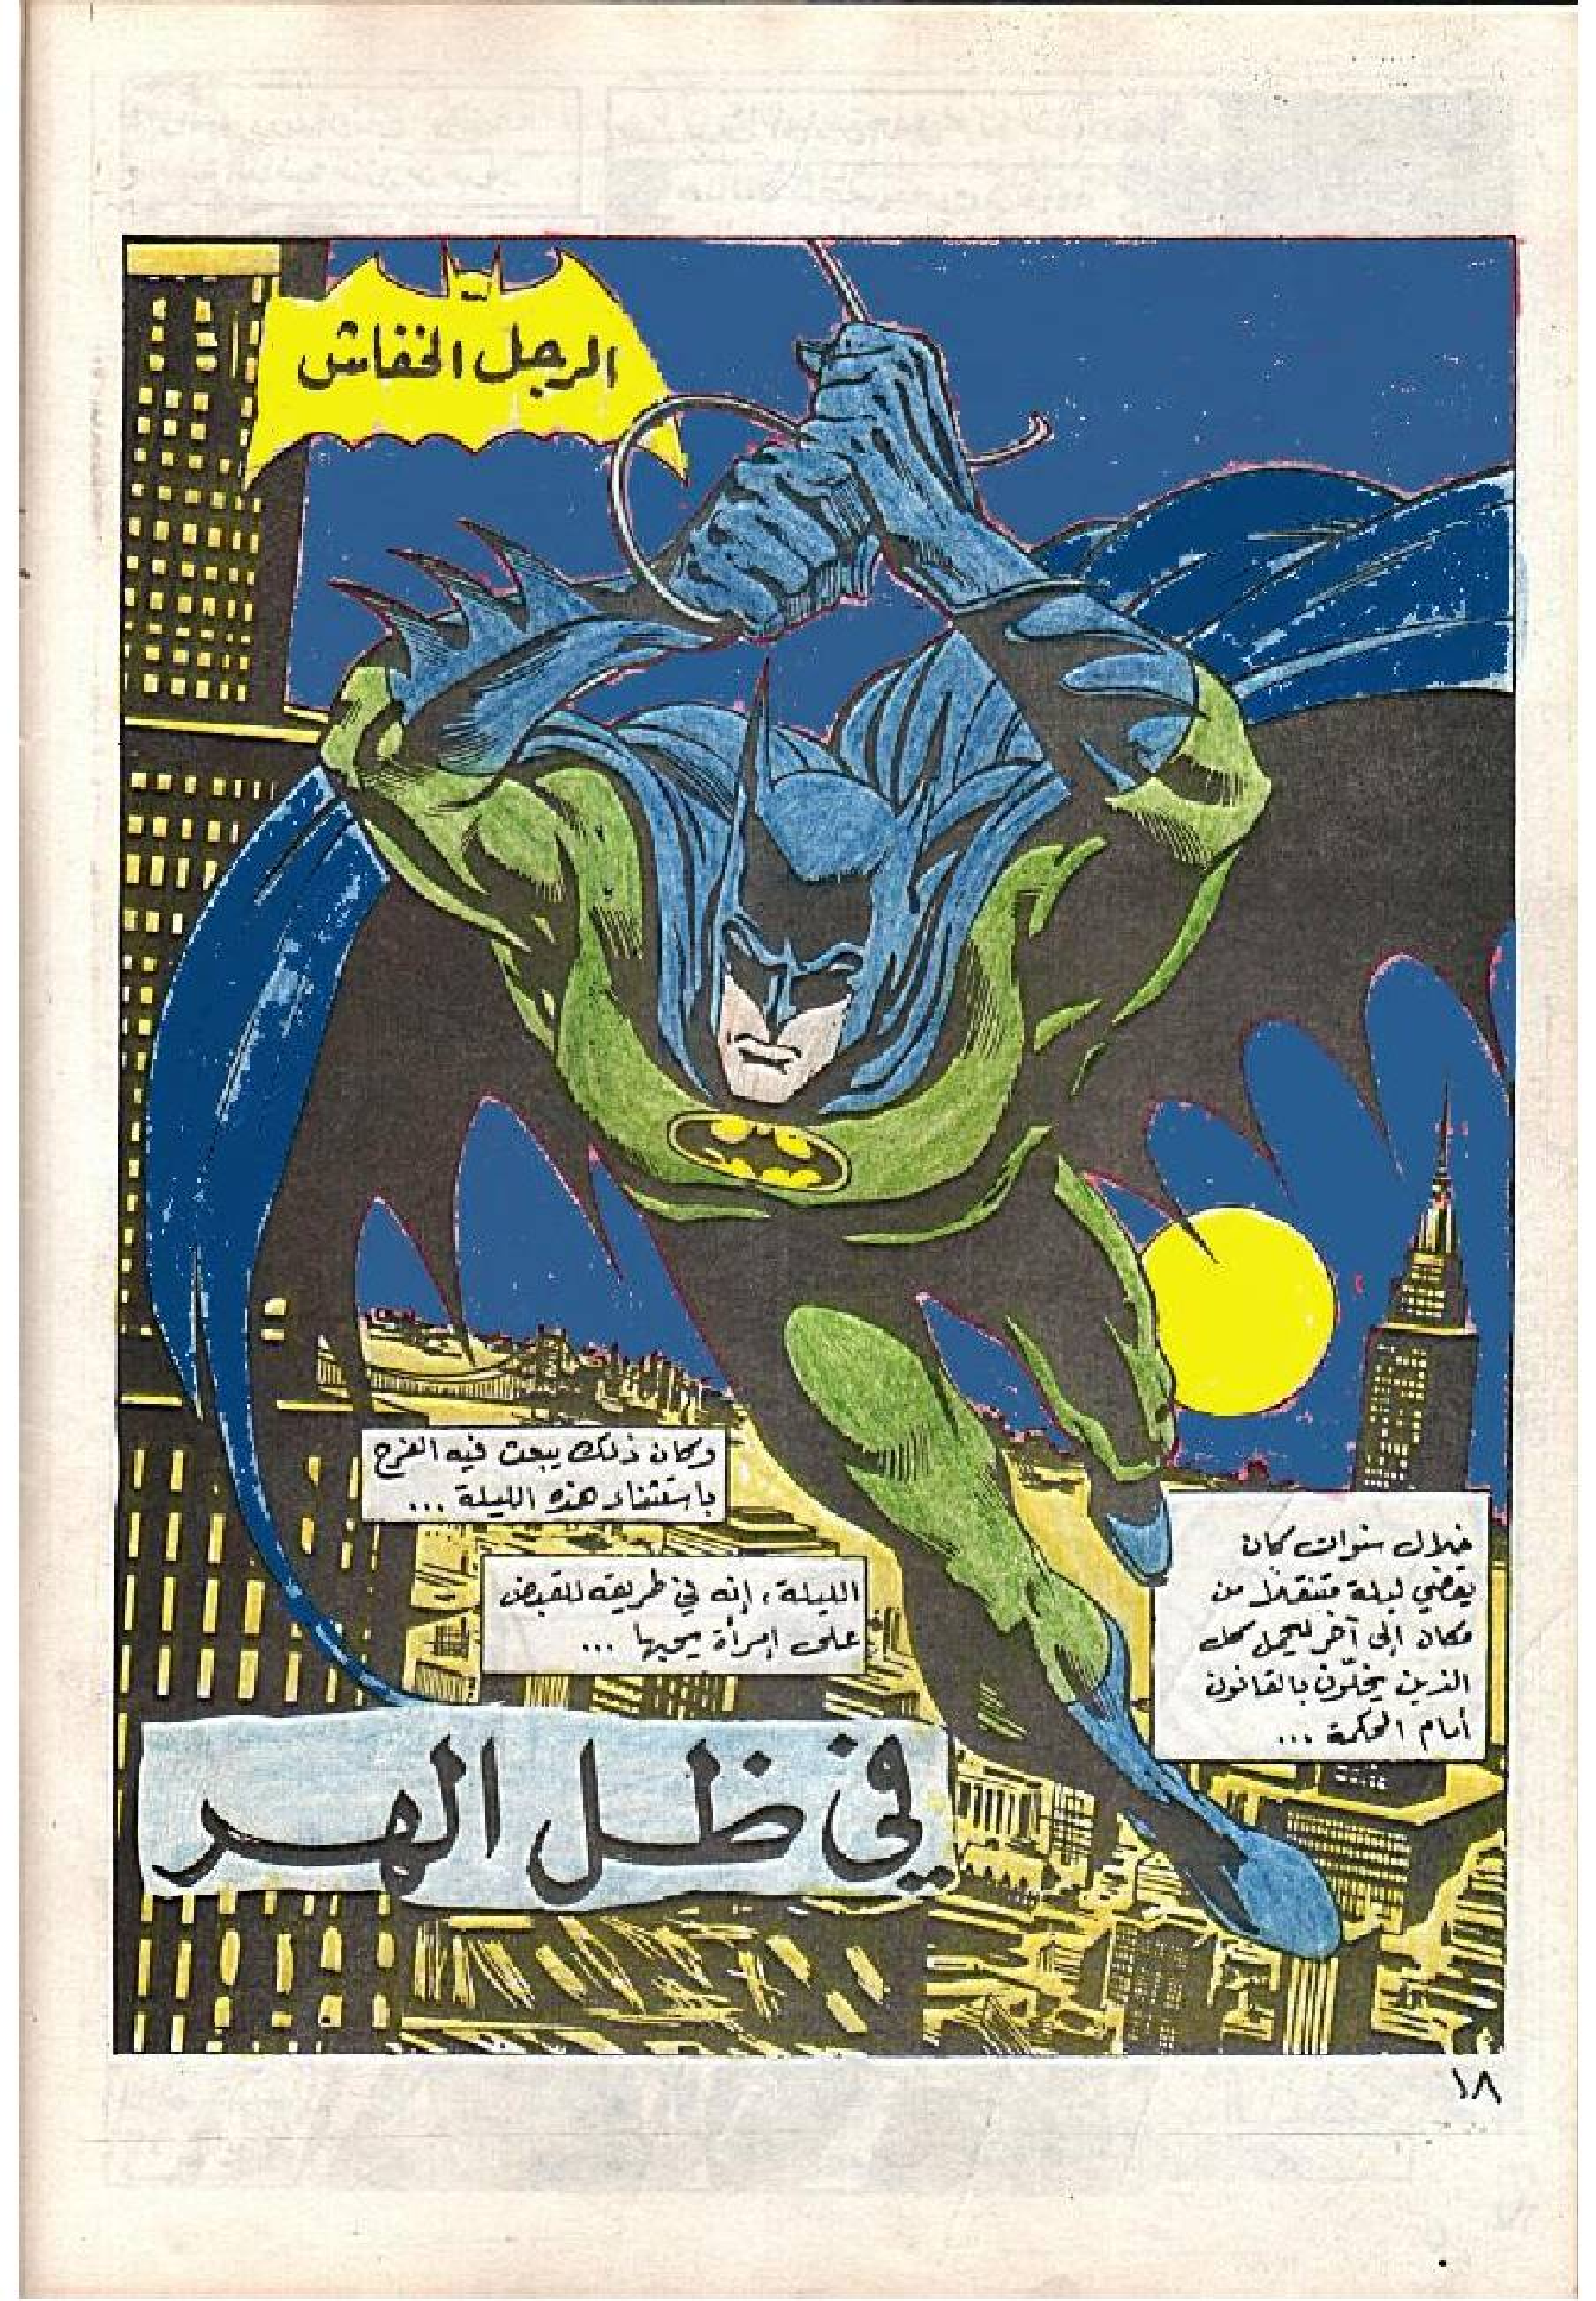 الرجل الخفاش
خلال سنوات كان
يقضي ليلة متنقلاً من
مكان إلى آخر ليجعل كل
الذين يخلّون بالقانون
أمام المحكمة ...
وكان ذلك يبعث فيه الفرح
باستثناء هذه الليلة ...
الليلة، إنه في طريقه للقبض
على إمرأة يحبها ...
في ظل الهر
١٨